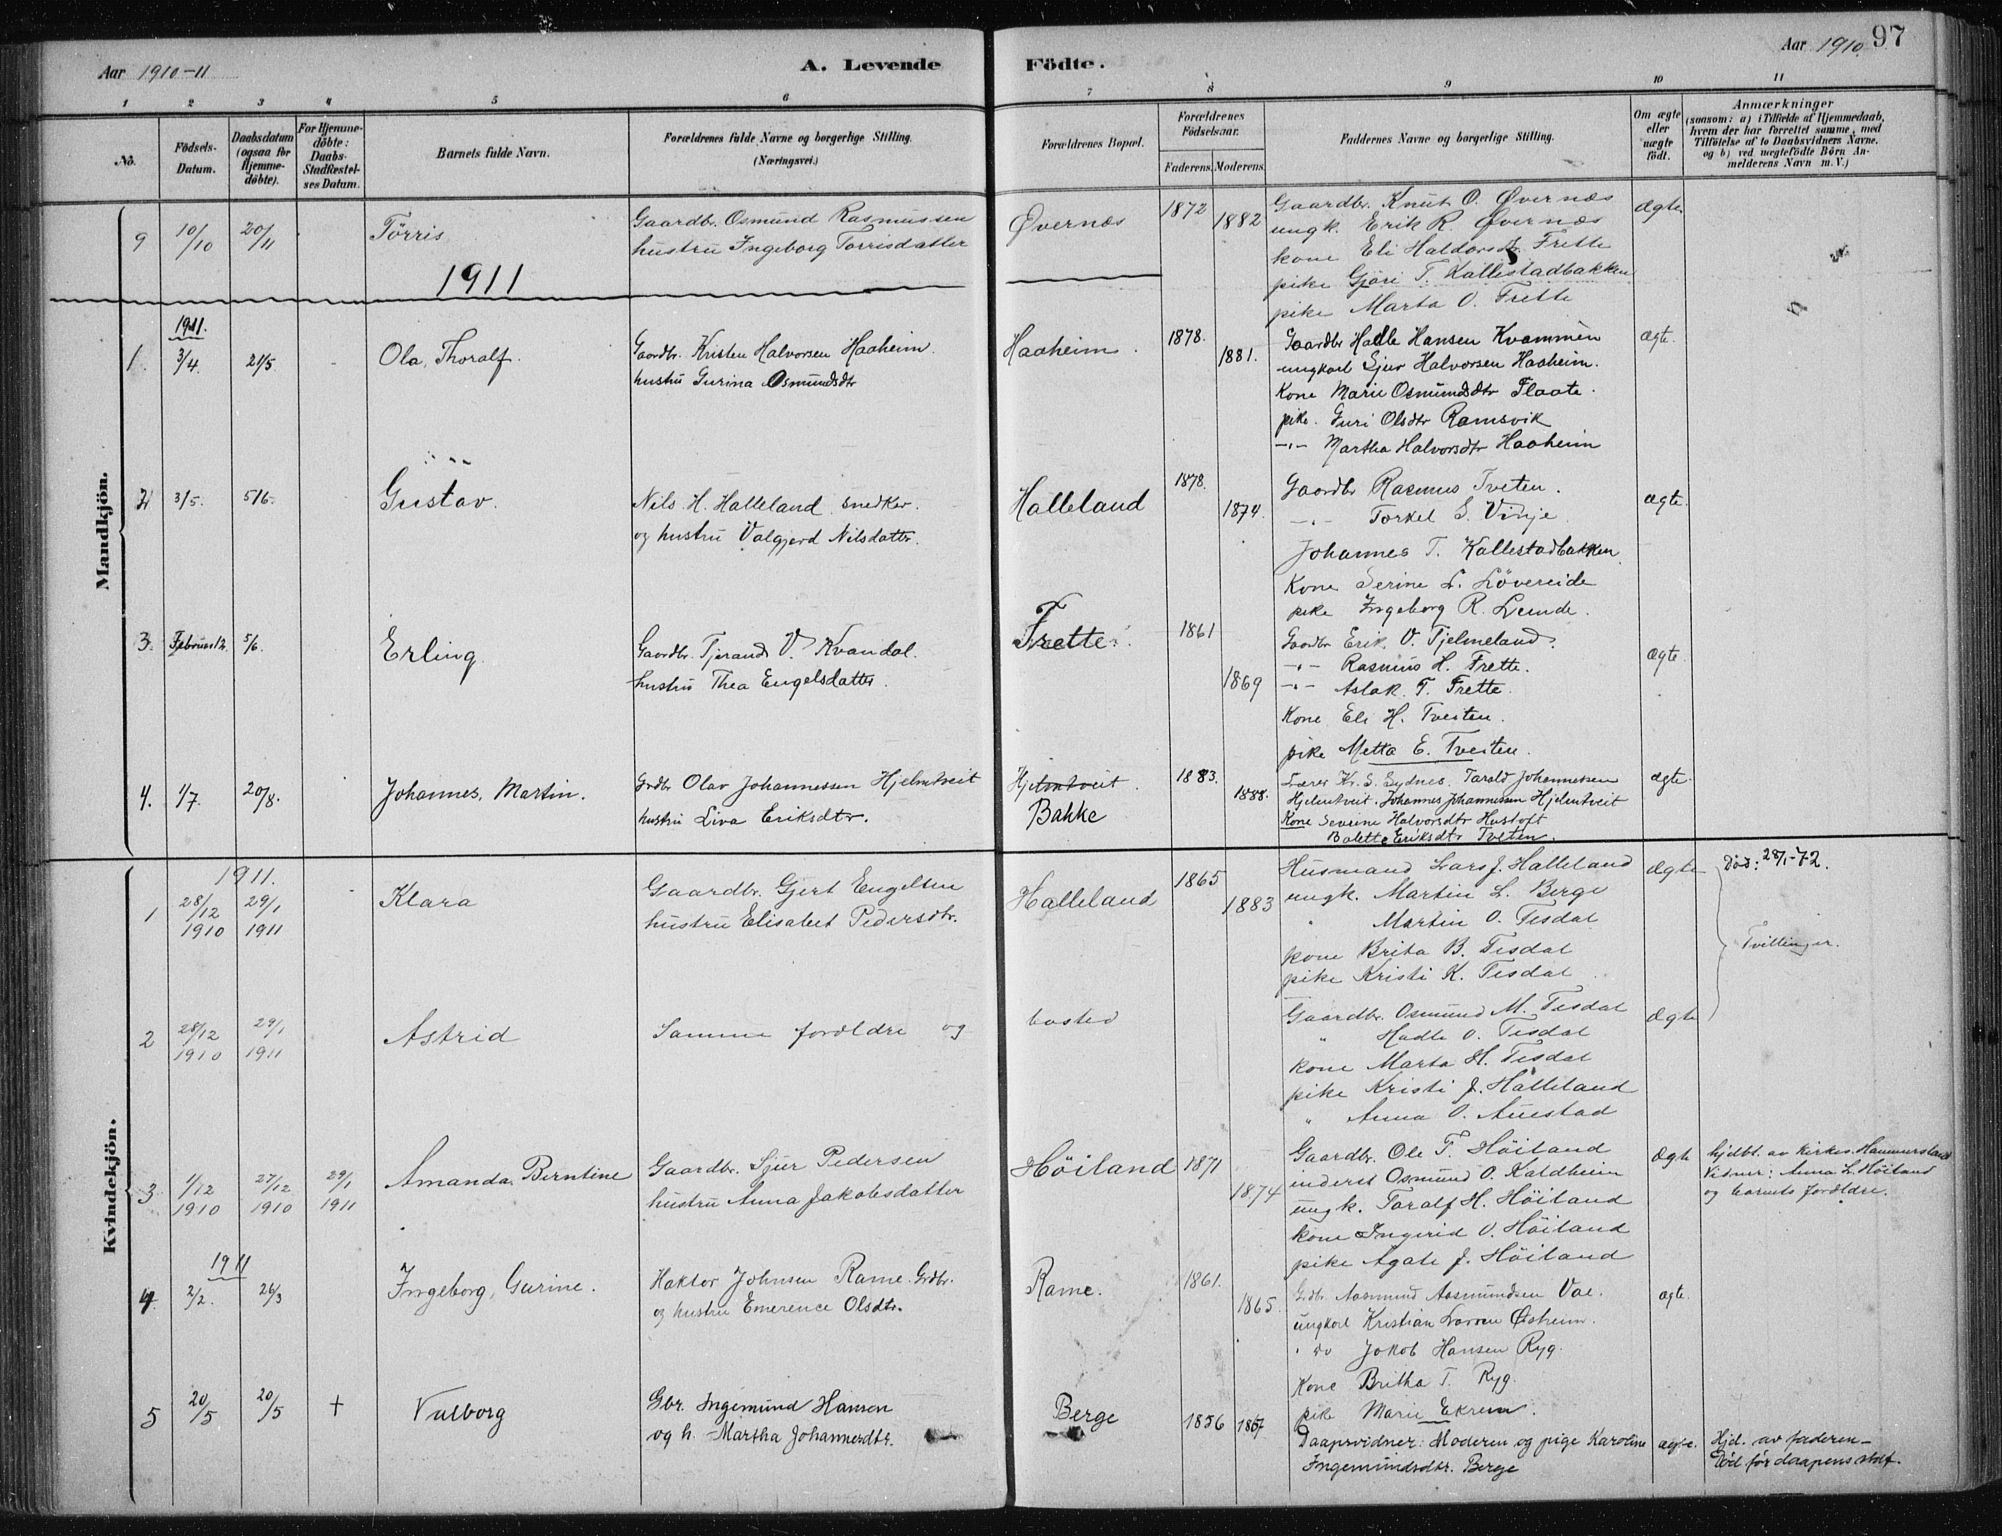 Aar 1910-11
A. Levende
Födte.
Aar 1910
97
1 2 3 4 5 6 7 8 9 10 11
No.
Födsels-
Datum.
Daabsdatum
(ogsaa for
Hjemme-
döbte).
For Hjemme-
döbte:
Daabs-
Stadfæstel-
ses Datum.
Barnets fulde Navn.
Forældrenes fulde Navne og borgerlige Stilling.
(Næringsvei.)
Forældrenes Bopæl.
Forældrenes
Födselsaar.
Faderens. Moderens.
Faddernes Navne og borgerlige Stilling.
Om ægte
eller
uægte
födt.
Anmærkninger
(saasom: a) i Tilfælde af Hjemmedaab,
hvem der har forrettet samme, med
Tilföielse af to Daabsvidners Navne.
og b) ved uægtefödte Börn An-
melderens Navn m. V.)
Mandkjön.
9 10/10 20/11 Tørris
Gaardbr. Osmund Rasmussen
hustru Ingeborg Torrisdatter
Øvernæs 1872 1882
Gaardbr. Knut O. Øvernæs
ungk. Erik R. Øvernæs
kone Eli Haldorsdtr Frette
pike Gjöri T. Kallestadbakken
pike Marta O. Frette
ægte
1911
1911.
1. 3/4. 21/5 - Ola, Thoralf.
Gaardbr. Kristen Halvorsen Haaheim.
hustru Gurina Osmundsdtr
Haaheim. 1878. 1881.
Gaardbr Halle Hansen Kvammen
ungkarl Sjur Halvorsen Haaheim.
Kone Marie Osmundsdtr Flaate.
pike. Guri Olsdtr Ramsvik
-"- Martha Halvorsdtr Haaheim
ægte.
2 3/5. 5/6. Gustav.
Nils H. Halleland snedker.
og hustru Valgjerd Nilsdattr.
Halleland 1878. 1874.
Gaardbr Rasmus Tveten.
-"- Torkel S. Vinje
Johannes T. Kallestadbakken
Kone Serine L. Lövereide
pike Ingeborg R. Lunde.
ægte.
3. 5/6. Erling.
Gaardbr. Tjerand V. Kvandal.
hustru Thea Engelsdatter.
Frette. 1861 1869
Gaardbr Erik. O. Tjelmeland.
-"- Rasmus H. Frette.
-"- Aslak. T. Frette.
Kone Eli H. Tveiten.
pike Metta E. Tveiten.
ægte.
4. 1/7. 20/8. Johannes, Martin.
Grdbr Olav Johannessen Hjelmtveit
hustru Liva Eriksdtr.
Hjelmtveit.
Bakke
1883. 1888.
Lærer Kr. S. Sydnes. Tarald Johannessen
Hjelmtveit. Johannes Johannessen Hjelmtveit
Kone Severine Halvorsdtr Hustoft
Bolette Eriksdtr Tveten.
ægte.
Kvindekjön.
1911.
1 28/12 1910 29/1 1911 Klara
Gaardbr. Gjert Engelsen
hustru Elisabet Pedersdtr.
Halleland 1865 1883
Husmand Lars J. Halleland
ungk. Martin L. Berge
" Martin O. Tesdal
kone Brita B. Tesdal
pike Kristi K. Tesdal
Ægte
Død: 28/1-72.
Tvillinger.
2 28/12 1910 29/1 1911 Astrid
Samme forældre og bosted
Gaardbr. Osmund M. Tesdal
" Hadle O. Tesdal
kone Marta H. Tesdal
pike Kristi J. Halleland
" Anna O. Austad
Ægte
3 1/12 1910 27/12 1910 29/1 1911 Amanda Berntine
Gaardbr. Sjur Pedersen
hustru Anna Jakobsdatter
Höiland 1871 1874
Gaardbr. Ole T. Höiland
enderst Osmund O. Kaldheim
ungk. Taralf H. Höiland
kone Ingerid O. Höiland
pike Agate J. Höiland
Ægte
hjdbt. av kirkes. Hammersland
Vidner: Anna L. Höiland
og barnets forældre.
1911
4 2/2. 26/3 Ingeborg, Gurine.
Haktor Johnsen Rame. Grdbr.
og hustru Emerence Olsdtr.
Rame. 1861. 1865
Grdbr. Aasmund Aasmundsen Vae.
ungkarl Kristian Larsen Øsheim.
" do Jakob Hansen Ryg.
Kone Britha T. Ryg.
pike Marie Ekrem.
ægte.
5 20/5 20/5 + Valborg
Gbr. Ingemund Hansen
og h. Martha Johannesdtr.
Berge 1856 1867
Daapsvidner: Moderen og pige Karoline
Ingemundsdtr. Berge
ægte.
Hjd. av faderen -
Död för daapens stadf.